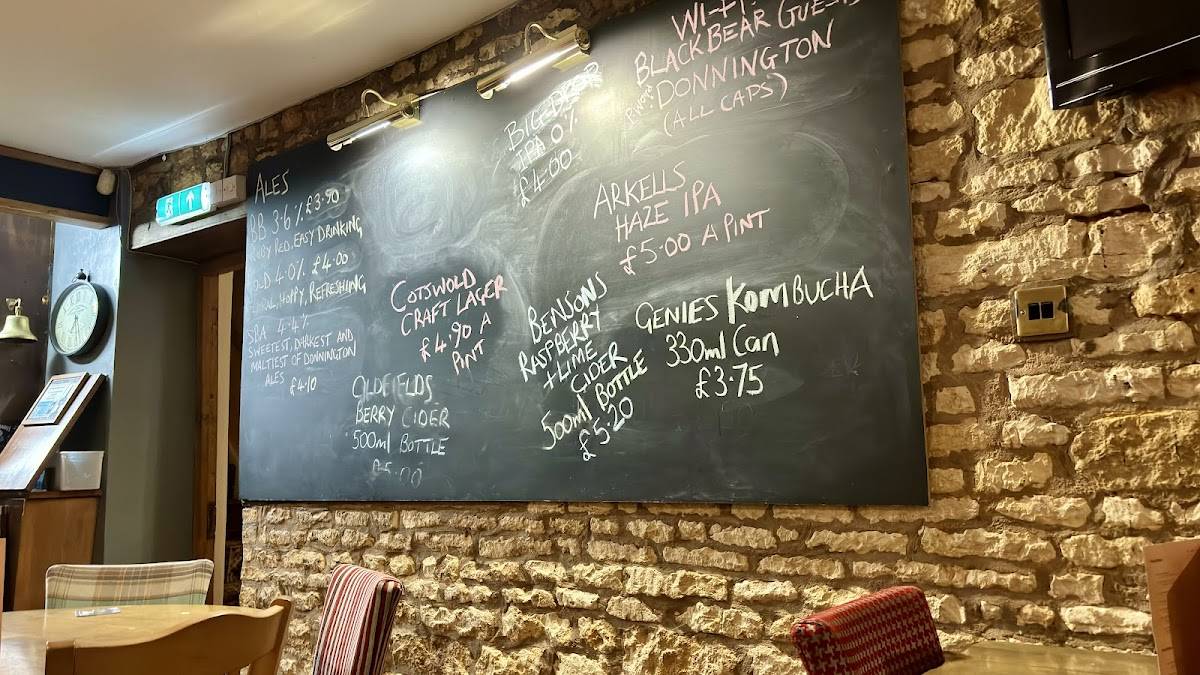 ALES
BB 3.6% £3.90
RUBY RED, EASY DRINKING
GOLD 4.0% £4.00
FLORAL, HOPPY, REFRESHING
SBA 4.4%
SWEETEST, DARKEST AND
MALTIEST OF DONNINGTON
ALES
£4.10
COTSWOLD
CRAFT LAGER
£4.90 A
PINT
OLDFIELDS
BERRY CIDER
500ml BOTTLE
£5.00
BIG DROP
IPA 0%
£4.00
BENSONS
RASPBERRY
+ LIME
CIDER
500ml BOTTLE
£5.20
WI-FI
BLACK BEAR GUEST
DONNINGTON
(ALL CAPS)
ARKELLS
HAZE IPA
£5.00 A PINT
GENIES KOMBUCHA
330ml Can
£3.75